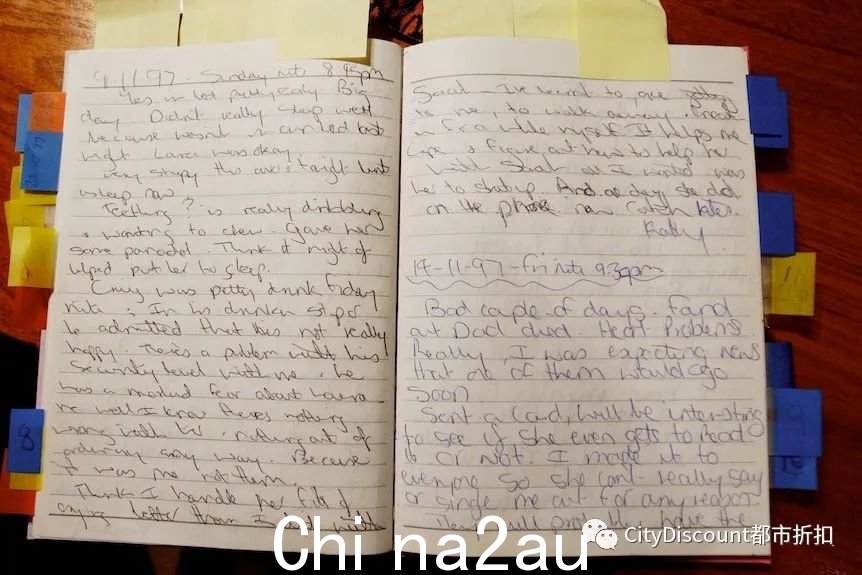 9.11.97. Sunday nite 8:45pm
Yes in bed pretty early. Big
day. Didn't really sleep well
because wasn't in own bed last
night. Laura was okay.
Very sleepy this
asleep now
Teething? is really dribbling
& wanting to chew. Gave her
some panadol. Think it might of
helped put her to sleep.
Craig was pretty drunk Friday
nite. In his drunken stupor
he admitted that he's not really
happy. There's a problem with his
security level with me. he
has a morbid fear about Laura
me well I know there's nothing
wrong with her. nothing out of
ordinary any way. Because
it was me not them.
Think I handle her fits of
crying better than I with
Sarah - I've learnt to,
to me, to walk away. Breathe
in for a while myself. It helps me
cope & figure out how to help her
With Sarah all I wanted was
her to shut up. And one day she did.
on the phone now catch later.
Kathy
14-11-97 - Fri nite 9:30pm
Bad couple of days. Found
out Dad died. Heart Problems.
Really, I was expecting news
that one of them would go
soon
Sent a Card, will be interesting
to see if she even gets to Read
it or not. I made it to
everyone so she cant really say
or single me out for any reason
They will probably have the
8
9
China2au
CityDiscount都市折扣